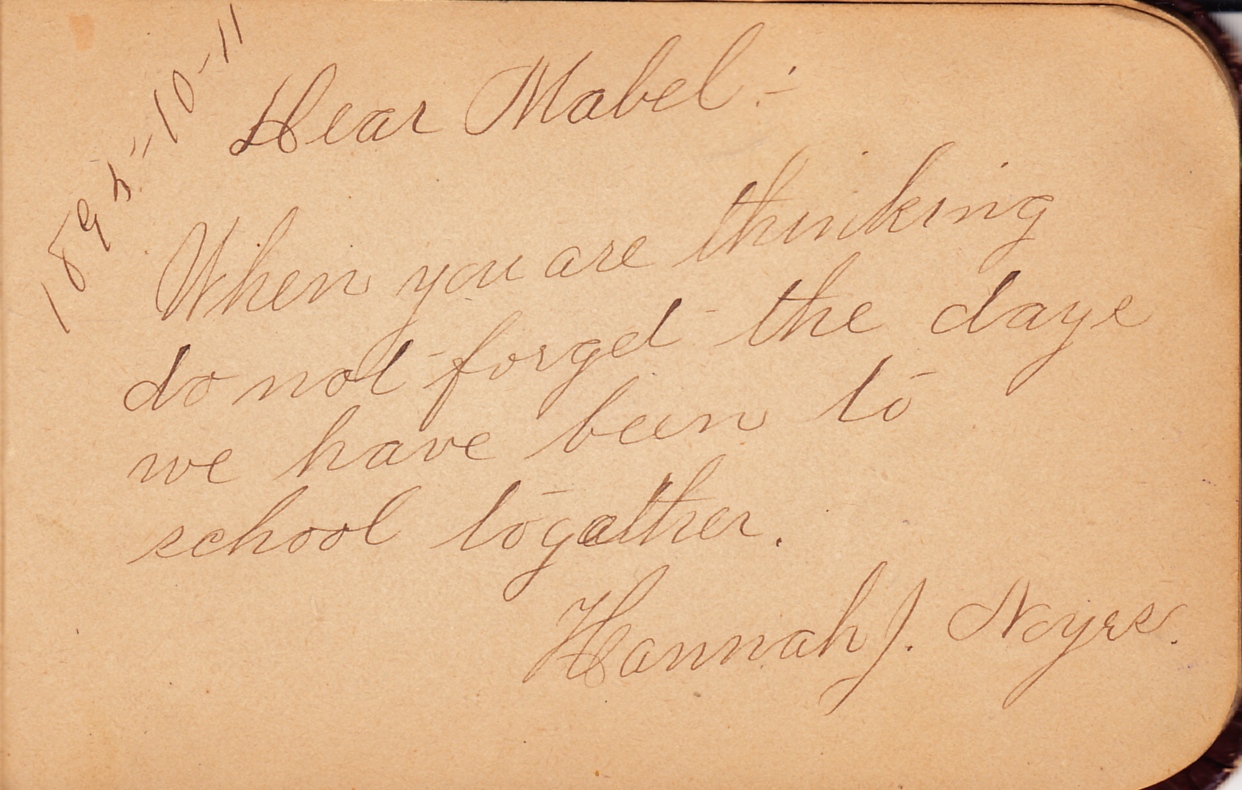 1895-10-11
Dear Mabel:-
When you are thinking
do not forget the days
we have been to
school togather.
Hannah J. Noyes.